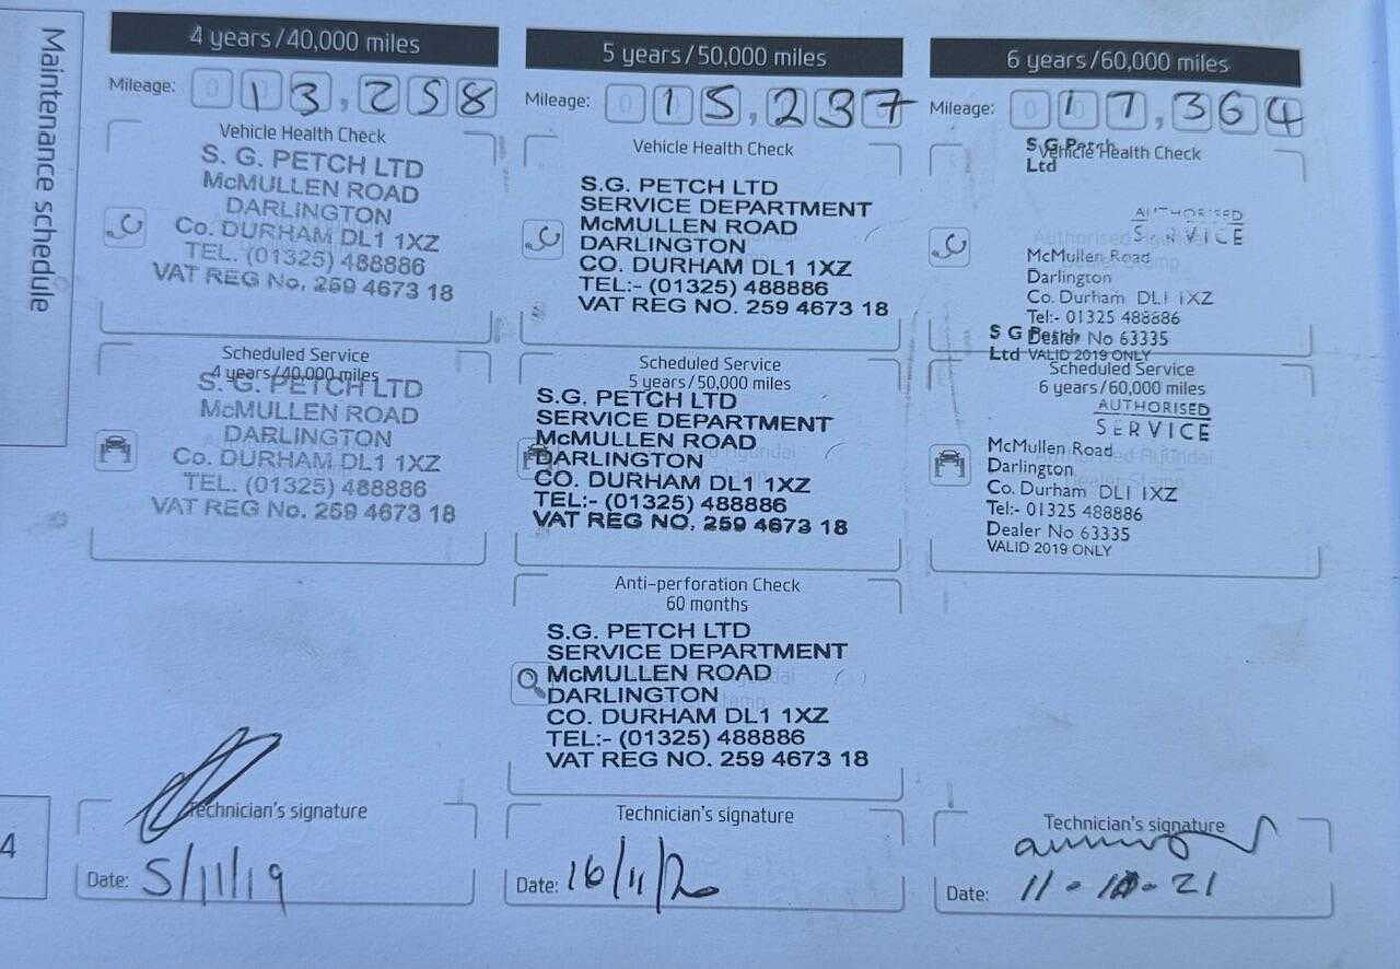 Maintenance schedule
4 years/40,000 miles
Mileage: 13,258
Vehicle Health Check
S. G. PETCH LTD
McMULLEN ROAD
DARLINGTON
Co. DURHAM DL1 1XZ
TEL. (01325) 488886
VAT REG No. 259 4673 18
Scheduled Service
4 years/40,000 miles
S. G. PETCH LTD
McMULLEN ROAD
DARLINGTON
Co. DURHAM DL1 1XZ
TEL. (01325) 488886
VAT REG No. 259 4673 18
Technician's signature
Date: 5/11/19
5 years/50,000 miles
Mileage: 15,237
Vehicle Health Check
S.G. PETCH LTD
SERVICE DEPARTMENT
McMULLEN ROAD
DARLINGTON
CO. DURHAM DL1 1XZ
TEL:- (01325) 488886
VAT REG NO. 259 4673 18
Scheduled Service
5 years/50,000 miles
S.G. PETCH LTD
SERVICE DEPARTMENT
McMULLEN ROAD
DARLINGTON
CO. DURHAM DL1 1XZ
TEL:- (01325) 488886
VAT REG NO. 259 4673 18
Anti-perforation Check
60 months
S.G. PETCH LTD
SERVICE DEPARTMENT
McMULLEN ROAD
DARLINGTON
CO. DURHAM DL1 1XZ
TEL:- (01325) 488886
VAT REG NO. 259 4673 18
Technician's signature
Date: 16/11/20
6 years/60,000 miles
Mileage: 17,364
Vehicle Health Check
S G Petch
Ltd
AUTHORISED
SERVICE
McMullen Road
Darlington
Co. Durham DL1 1XZ
Tel:- 01325 488886
Dealer No 63335
VALID 2019 ONLY
Scheduled Service
6 years/60,000 miles
S G Petch
Ltd
AUTHORISED
SERVICE
McMullen Road
Darlington
Co. Durham DL1 1XZ
Tel:- 01325 488886
Dealer No 63335
VALID 2019 ONLY
Technician's signature
Date: 11-10-21
4